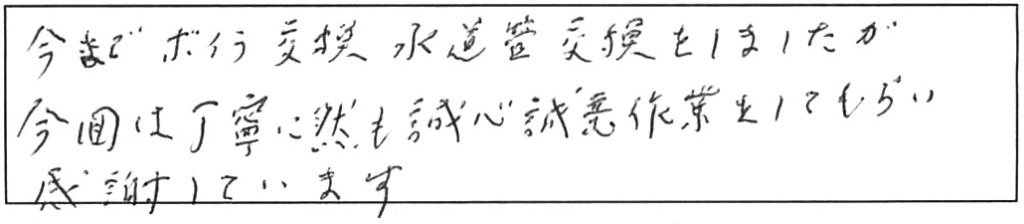 今までボイラ交換水道管交換をしましたが
今回は丁寧に然も誠心誠意作業をしてもらい
感謝しています